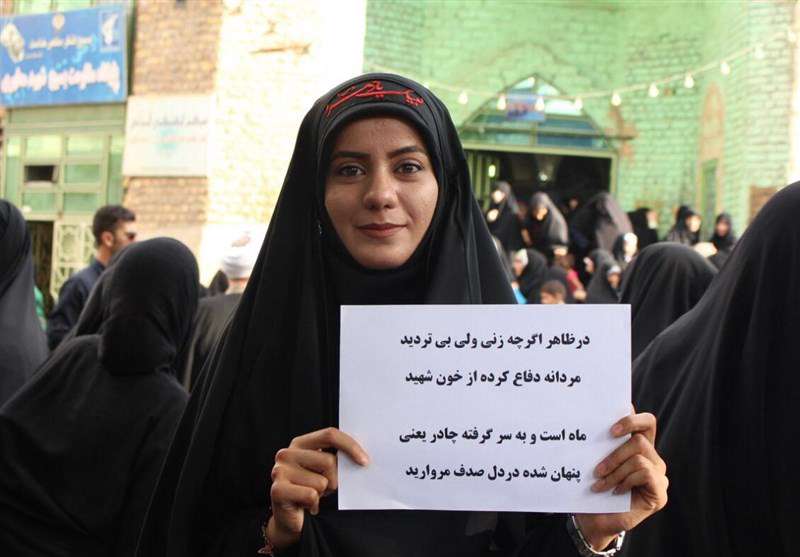 درظاهر اگرچه زنی ولی بی تردید
مردانه دفاع کرده از خون شهید
ماه است و به سر گرفته چادر یعنی
پنهان شده دردل صدف مروارید